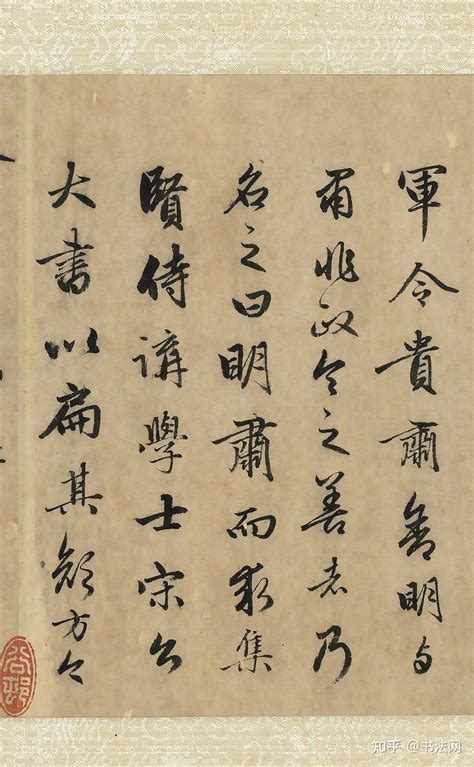 軍令貴肅舍明与
肅非政令之善者乃
名之曰明肅而求集
賢侍講學士宋公
大書以扁其顏方今
知乎 @书法网